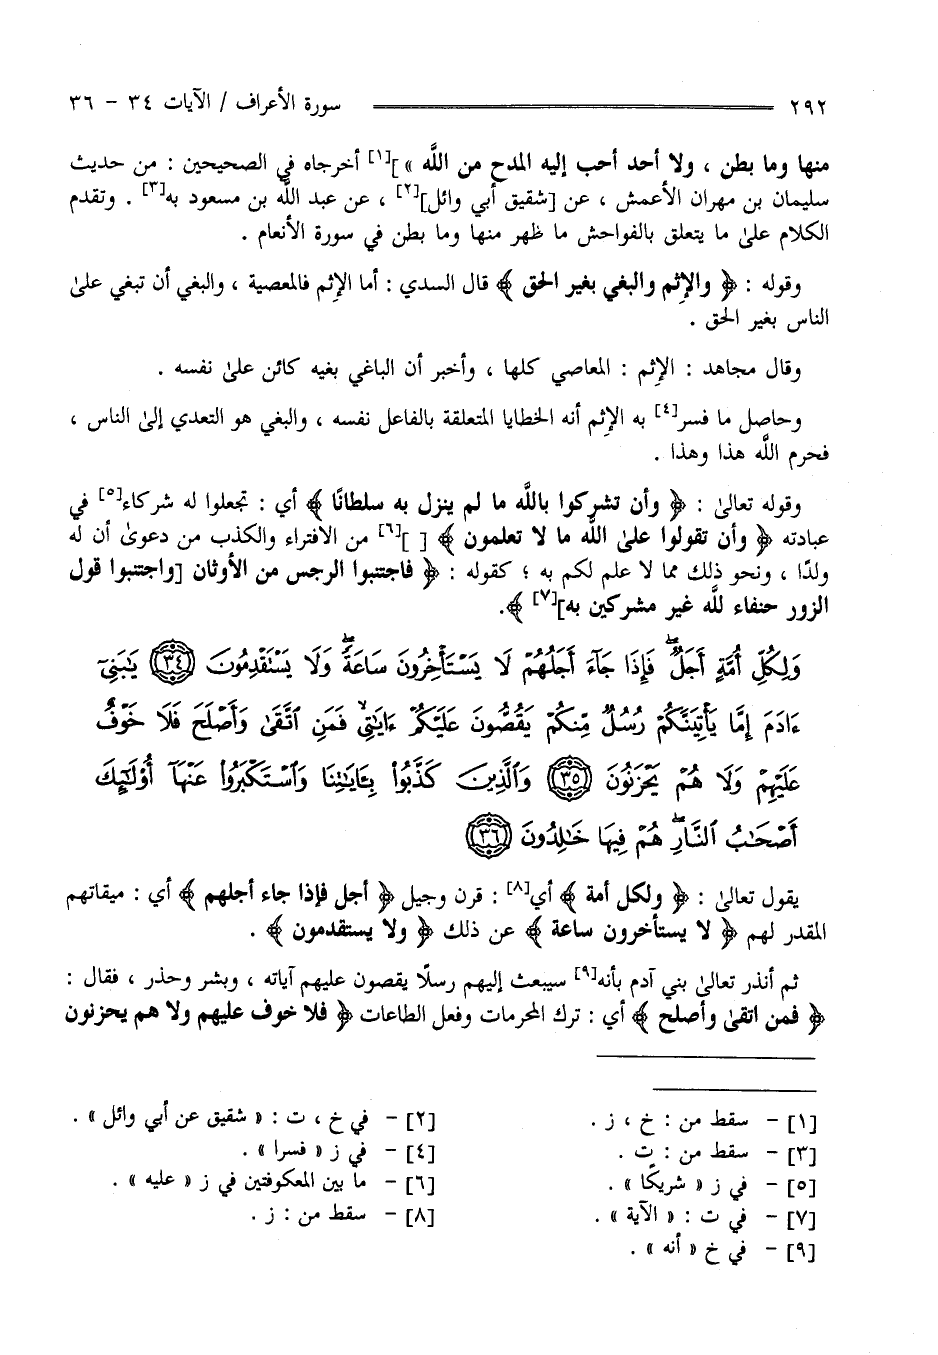 ٢٩٢ سورة الأعراف / الآيات ٣٤ - ٣٦
منها وما بطن ، ولا أحد أحب إليه المدح من اللَّه »][١] أخرجاه في الصحيحين : من حديث
سليمان بن مهران الأعمش ، عن [شقيق أبي وائل][٢] ، عن عبد اللَّه بن مسعود به[٣] . وتقدم
الكلام علىٰ ما يتعلق بالفواحش ما ظهر منها وما بطن في سورة الأنعام .
وقوله : ﴿ والإثم والبغي بغير الحق ﴾ قال السدي : أما الإثم فالمعصية ، والبغي أن تبغي علىٰ
الناس بغير الحق .
وقال مجاهد : الإثم : المعاصي كلها ، وأخبر أن الباغي بغيه كائن علىٰ نفسه .
وحاصل ما فسر[٤] به الإثم أنه الخطايا المتعلقة بالفاعل نفسه ، والبغي هو التعدي إلىٰ الناس ،
فحرم اللَّه هذا وهذا .
وقوله تعالىٰ : ﴿ وأن تشركوا باللَّه ما لم ينزل به سلطانًا ﴾ أي : تجعلوا له شركاء[٥] في
عبادته ﴿ وأن تقولوا علىٰ اللَّه ما لا تعلمون ﴾ [ ][٦] من الافتراء والكذب من دعوىٰ أن له
ولدًا ، ونحو ذلك مما لا علم لكم به ؛ كقوله : ﴿ فاجتنبوا الرجس من الأوثان [واجتنبوا قول
الزور حنفاء للَّه غير مشركين به][٧] ﴾.
وَلِكُلِّ أُمَّةٍ أَجَلٌۖ فَإِذَا جَآءَ أَجَلُهُمۡ لَا يَسۡتَأۡخِرُونَ سَاعَةٗۖ وَلَا يَسۡتَقۡدِمُونَ ٣٤ يَٰبَنِيٓ
ءَادَمَ إِمَّا يَأۡتِيَنَّكُمۡ رُسُلٞ مِّنكُمۡ يَقُصُّونَ عَلَيۡكُمۡ ءَايَٰتِي فَمَنِ ٱتَّقَىٰ وَأَصۡلَحَ فَلَا خَوۡفٌ
عَلَيۡهِمۡ وَلَا هُمۡ يَحۡزَنُونَ ٣٥ وَٱلَّذِينَ كَذَّبُواْ بِـَٔايَٰتِنَا وَٱسۡتَكۡبَرُواْ عَنۡهَآ أُوْلَٰٓئِكَ
أَصۡحَٰبُ ٱلنَّارِۖ هُمۡ فِيهَا خَٰلِدُونَ ٣٦
يقول تعالىٰ : ﴿ ولكل أمة ﴾ أي[٨] : قرن وجيل ﴿ أجل فإذا جاء أجلهم ﴾ أي : ميقاتهم
المقدر لهم ﴿ لا يستأخرون ساعة ﴾ عن ذلك ﴿ ولا يستقدمون ﴾ .
ثم أنذر تعالىٰ بني آدم بأنه[٩] سيبعث إليهم رسلًا يقصون عليهم آياته ، وبشر وحذر ، فقال :
﴿ فمن اتقىٰ وأصلح ﴾ أي : ترك المحرمات وفعل الطاعات ﴿ فلا خوف عليهم ولا هم يحزنون
[١] - سقط من : خ ، ز . [٢] - في خ ، ت : « شقيق عن أبي وائل » .
[٣] - سقط من : ت . [٤] - في ز « فسرا » .
[٥] - في ز « شريكًا » . [٦] - ما بين المعكوفتين في ز « عليه » .
[٧] - في ت : « الآية » . [٨] - سقط من : ز .
[٩] - في خ « أنه » .